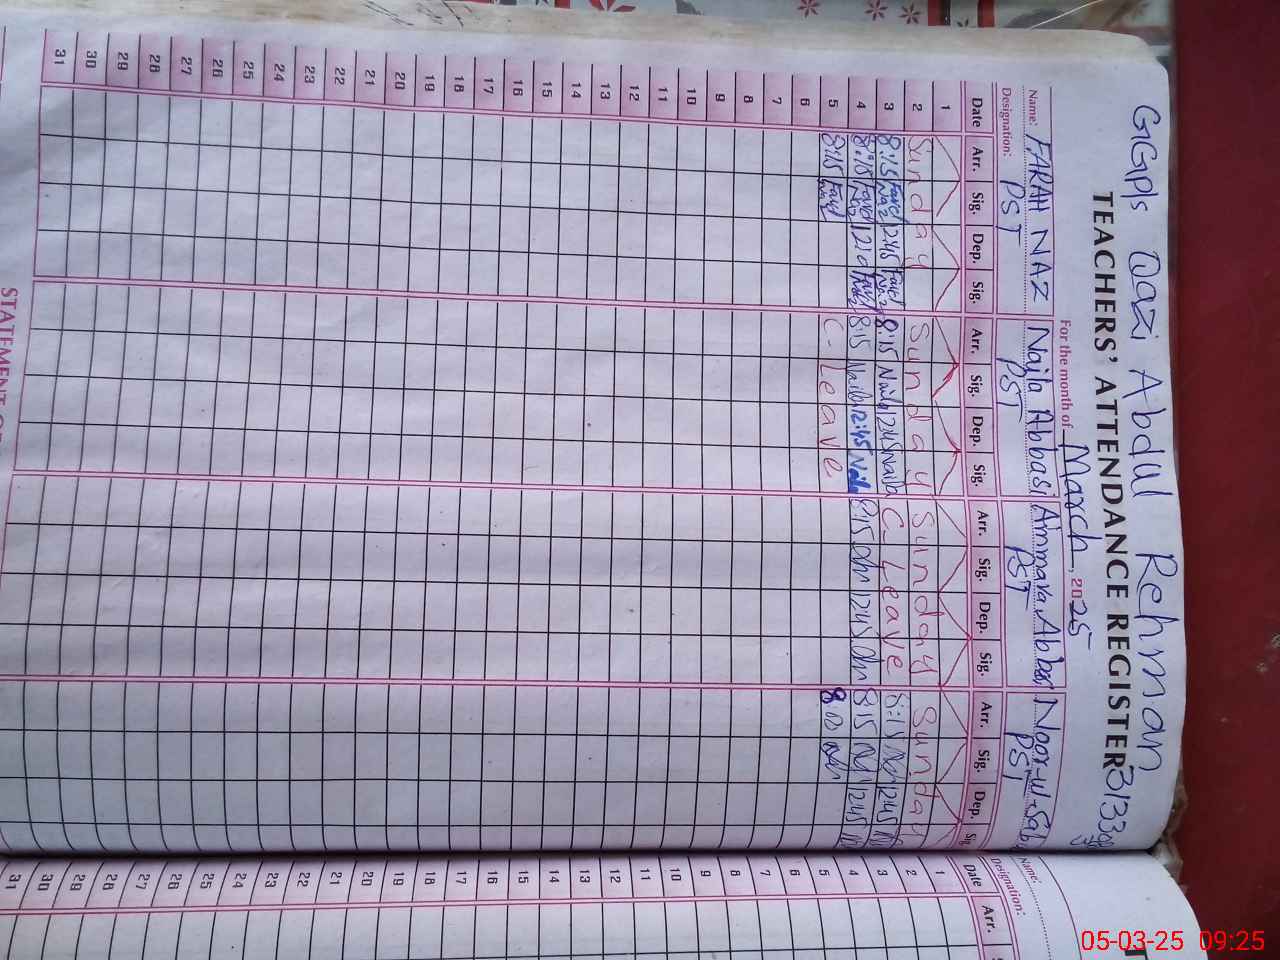 GGPls Qazi Abdul Rehman
TEACHERS' ATTENDANCE REGISTER
For the month of March, 2025
Name: FARAH NAZ Naila Abbasi Ammara Abbasi Noor-ul-Saba
Designation: PST PST PST PST
Date Arr. Sig. Dep. Sig. Arr. Sig. Dep. Sig. Arr. Sig. Dep. Sig. Arr. Sig. Dep. Sig.
1
2 Sunday Sunday Sunday Sunday
3 8:15 Farah Naz 12:45 Farah Naz 8:15 Naila 12:45 Naila C-Leave 8:15 12:45
4 8:15 Farah Naz Farah Naz 8:15 Naila 12:45 Naila 8:15 12:45 8:15 12:45
5 8:15 Farah Naz C-Leave 8:00
6
7
8
9
10
11
12
13
14
15
16
17
18
19
20
21
22
23
24
25
26
27
28
29
30
31
STATEMENT OF
Name:
Designation:
Date Arr.
1
2
3
4
5
6
7
8
9
10
11
12
13
14
15
16
17
18
19
20
21
22
23
24
25
26
27
28
29
30
31
05-03-25 09:25